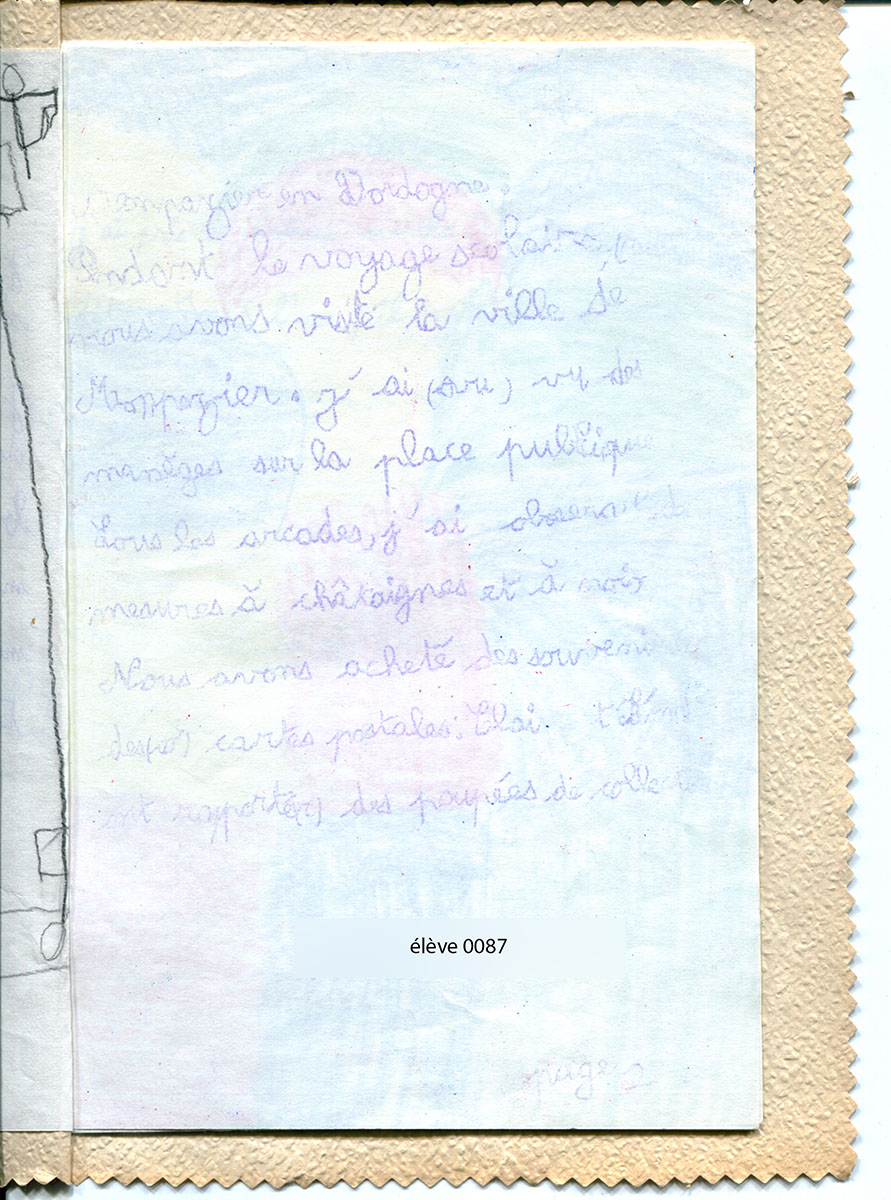 Monpazier en Dordogne.
Pendant le voyage scolaire,
nous avons visité la ville de
Monpazier. j'ai (vu) vu des
manèges sur la place publique
Sous les arcades, j'ai
mesures à châtaignes et à noix
Nous avons acheté des
des cartes postales.
ont des poupées de
élève 0087
page